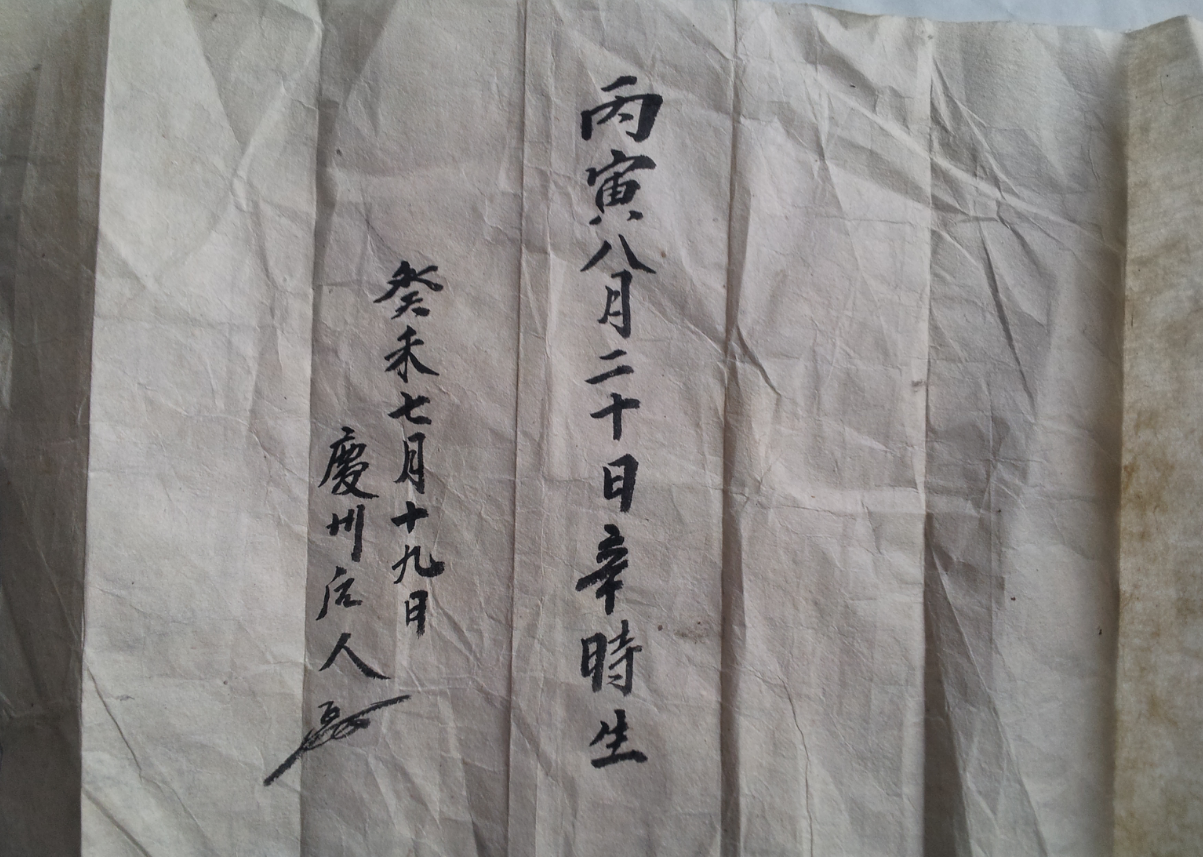 丙寅八月二十日辛時生
癸未七月十九日
慶州后人